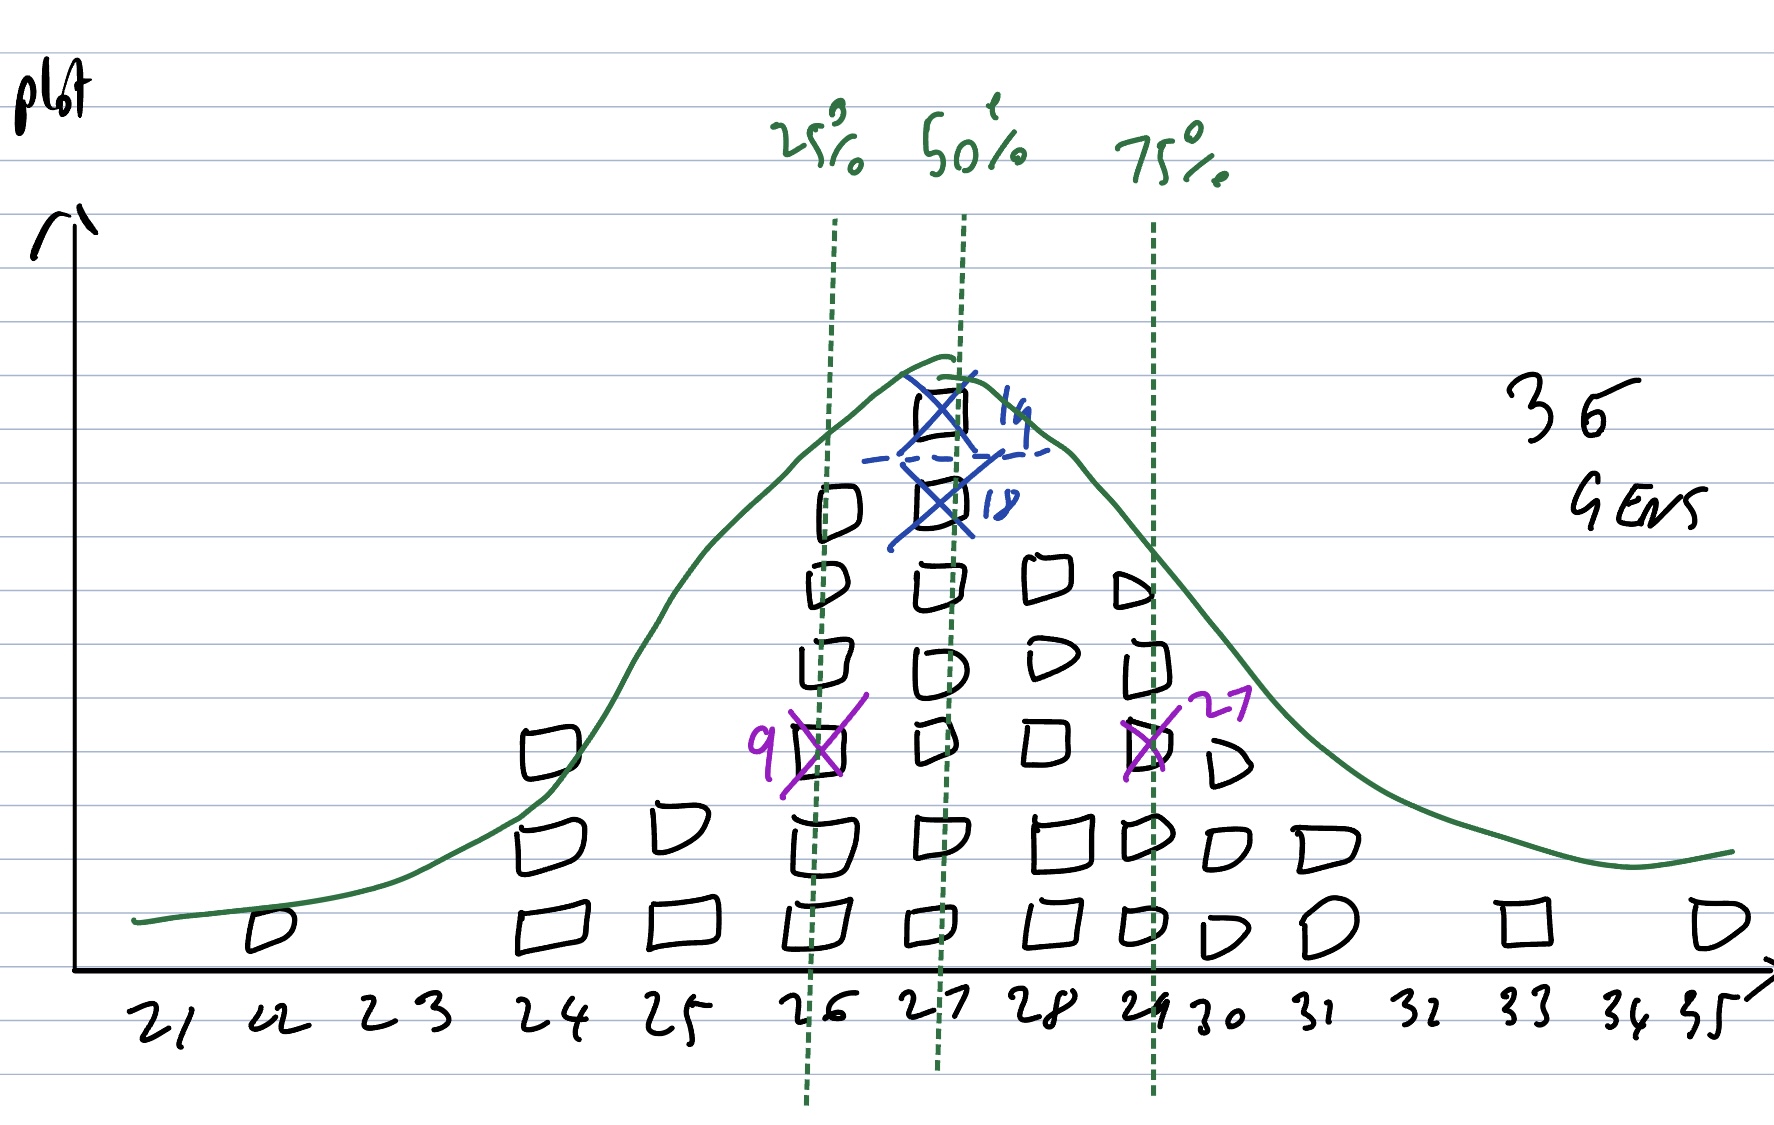 plot
25% 50% 75%
19
36
18
GENS
9
27
21 22 23 24 25 26 27 28 29 30 31 32 33 34 35